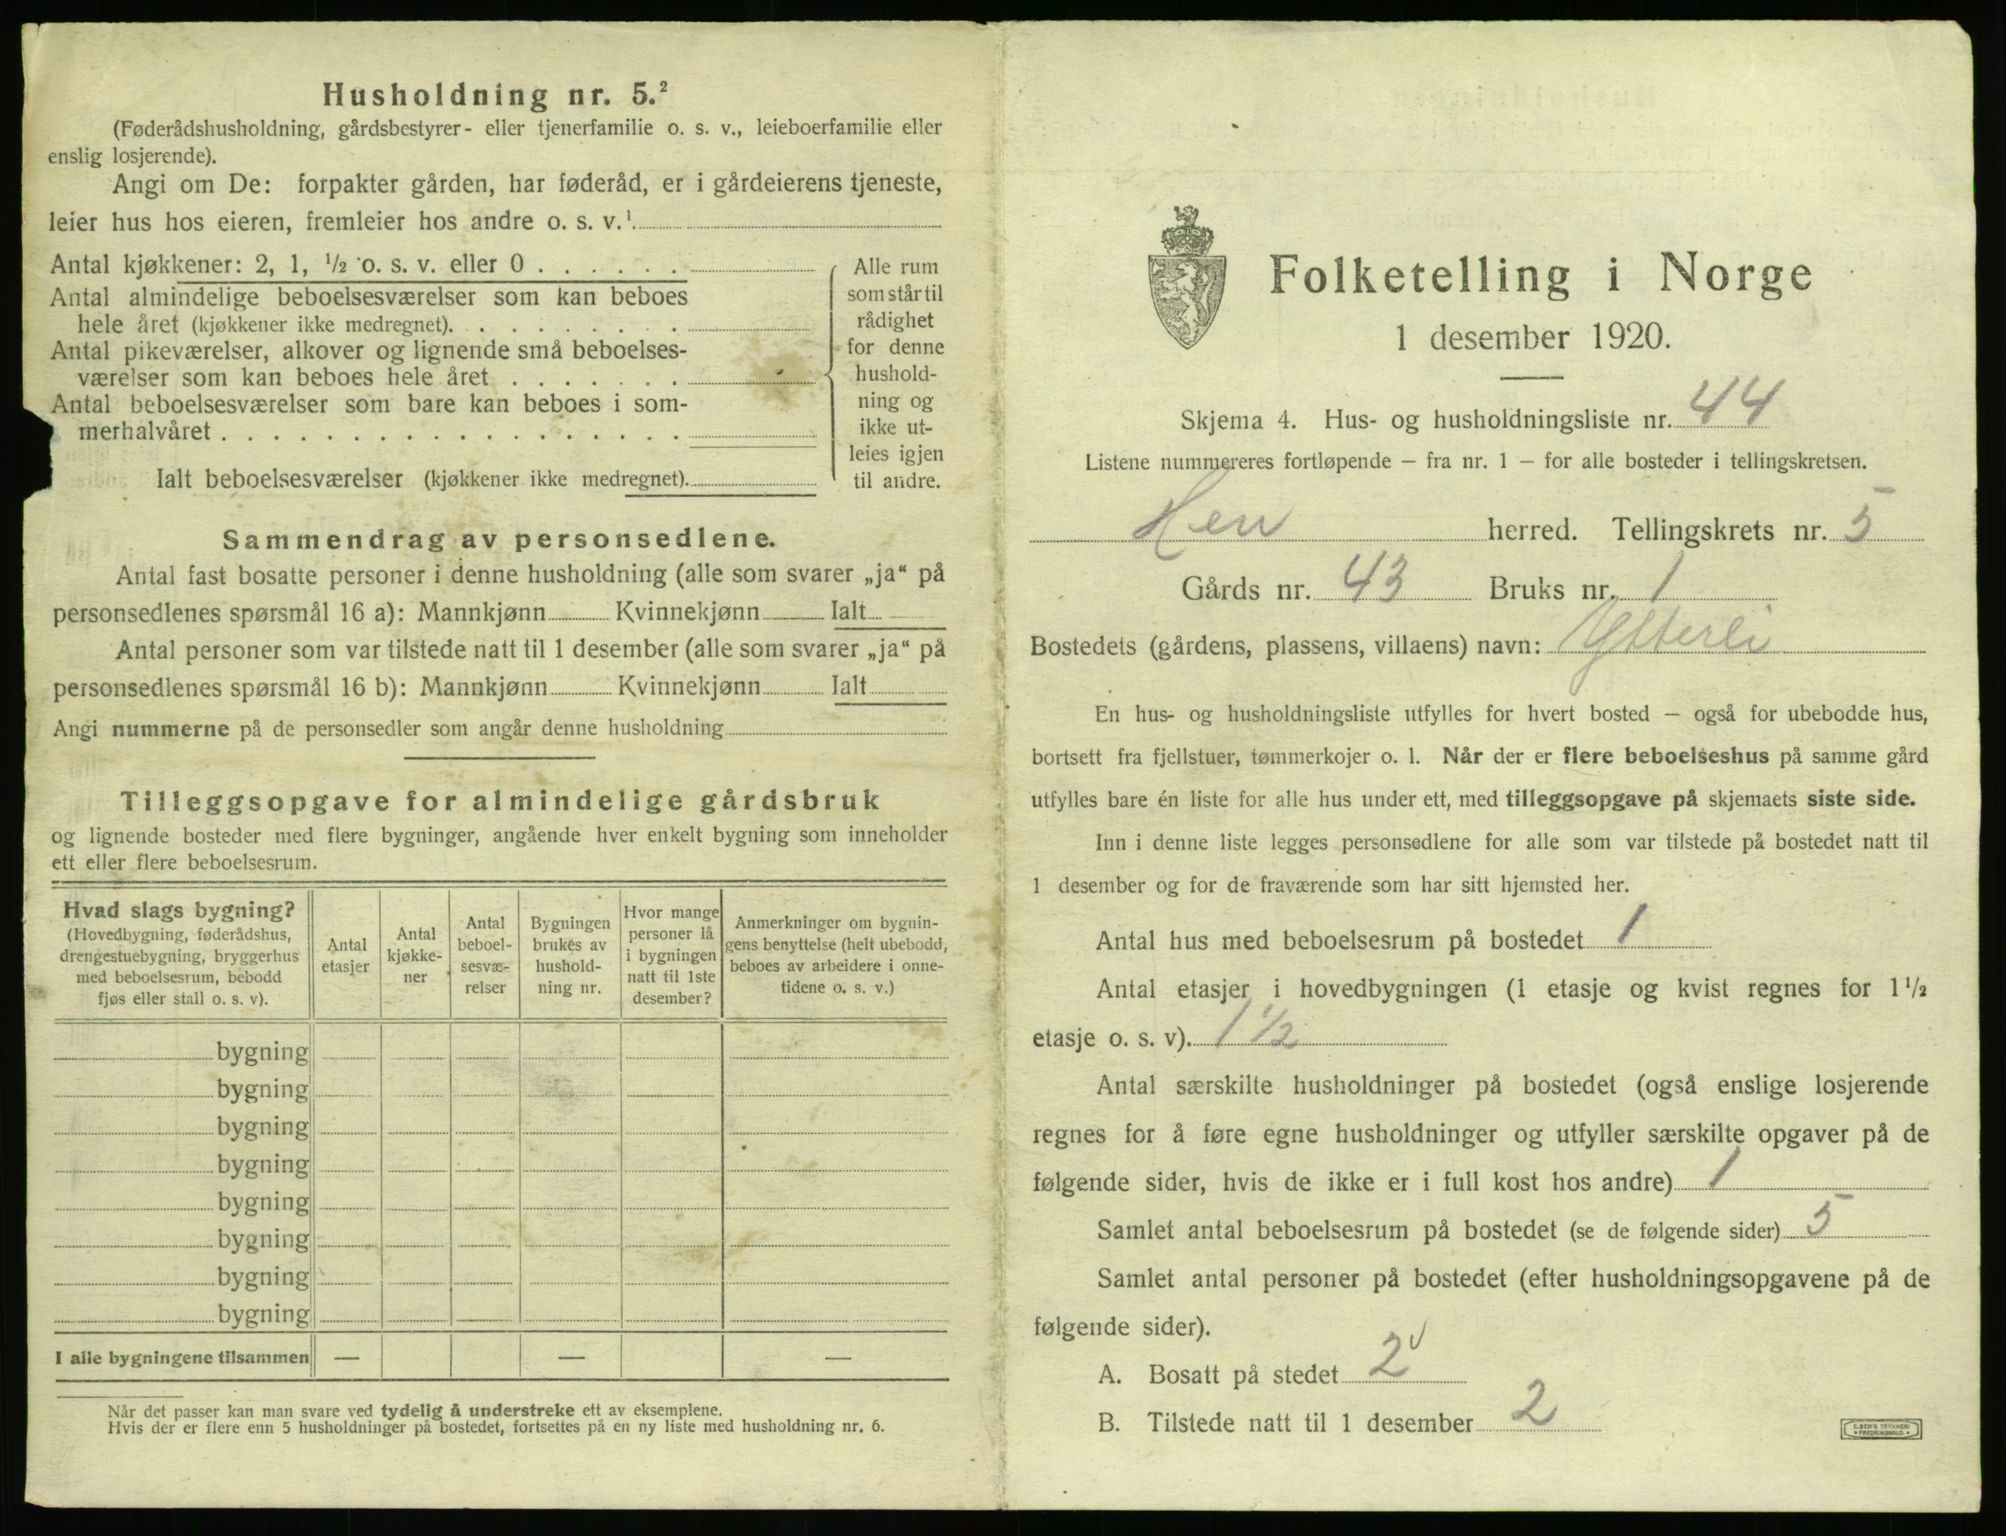 Husholdning nr. 5.²
(Føderådshusholdning, gårdsbestyrer- eller tjenerfamilie o. s. v., leieboerfamilie eller
enslig losjerende).
Angi om De: forpakter gården, har føderåd, er i gårdeierens tjeneste,
leier hus hos eieren, fremleier hos andre o. s. v.¹
Antal kjøkkener: 2, 1, ½ o. s. v. eller 0 . . . . . .
Antal almindelige beboelsesværelser som kan beboes
hele året (kjøkkener ikke medregnet). . . . . . . . .
Antal pikeværelser, alkover og lignende små beboelses-
værelser som kan beboes hele året . . . . . . .
Antal beboelsesværelser som bare kan beboes i som-
merhalvåret . . . . . . . . . . . . . . . . . .
Ialt beboelsesværelser (kjøkkener ikke medregnet).
Alle rum
som står til
rådighet
for denne
hushold-
ning og
ikke ut-
leies igjen
til andre.
Sammendrag av personsedlene.
Antal fast bosatte personer i denne husholdning (alle som svarer „ja“ på
personsedlenes spørsmål 16 a): Mannkjønn Kvinnekjønn Ialt
Antal personer som var tilstede natt til 1 desember (alle som svarer „ja“ på
personsedlenes spørsmål 16 b): Mannkjønn Kvinnekjønn Ialt
Angi nummerne på de personsedler som angår denne husholdning
Tilleggsopgave for almindelige gårdsbruk
og lignende bosteder med flere bygninger, angående hver enkelt bygning som inneholder
ett eller flere beboelsesrum.
Hvad slags bygning?
(Hovedbygning, føderådshus,
drengestuebygning, bryggerhus
med beboelsesrum, bebodd
fjøs eller stall o. s. v).
Antal
etasjer
Antal
kjøkke-
ner
Antal
beboel-
sesvæ-
relser
Bygningen
brukes av
hushold-
ning nr.
Hvor mange
personer lå
i bygningen
natt til 1ste
desember?
Anmerkninger om bygnin-
gens benyttelse (helt ubebodd,
beboes av arbeidere i onne-
tidene o. s. v.)
bygning
bygning
bygning
bygning
bygning
bygning
bygning
bygning
I alle bygningene tilsammen — — —
Når det passer kan man svare ved tydelig å understreke ett av eksemplene.
Hvis der er flere enn 5 husholdninger på bostedet, fortsettes på en ny liste med husholdning nr. 6.
Folketelling i Norge
1 desember 1920.
Skjema 4. Hus- og husholdningsliste nr. 44
Listene nummereres fortløpende — fra nr. 1 — for alle bosteder i tellingskretsen.
Hen herred. Tellingskrets nr. 5
Gårds nr. 43 Bruks nr. 1
Bostedets (gårdens, plassens, villaens) navn: Ytterli
En hus- og husholdningsliste utfylles for hvert bosted — også for ubebodde hus,
bortsett fra fjellstuer, tømmerkojer o. l. Når der er flere beboelseshus på samme gård
utfylles bare én liste for alle hus under ett, med tilleggsopgave på skjemaets siste side.
Inn i denne liste legges personsedlene for alle som var tilstede på bostedet natt til
1 desember og for de fraværende som har sitt hjemsted her.
Antal hus med beboelsesrum på bostedet 1
Antal etasjer i hovedbygningen (1 etasje og kvist regnes for 1½
etasje o. s. v). 1½
Antal særskilte husholdninger på bostedet (også enslige losjerende
regnes for å føre egne husholdninger og utfyller særskilte opgaver på de
følgende sider, hvis de ikke er i full kost hos andre) 1
Samlet antal beboelsesrum på bostedet (se de følgende sider) 5
Samlet antal personer på bostedet (efter husholdningsopgavene på de
følgende sider).
A. Bosatt på stedet 2
B. Tilstede natt til 1 desember 2
E. SEM'S TRYKKERI
FREDRIKSHALD